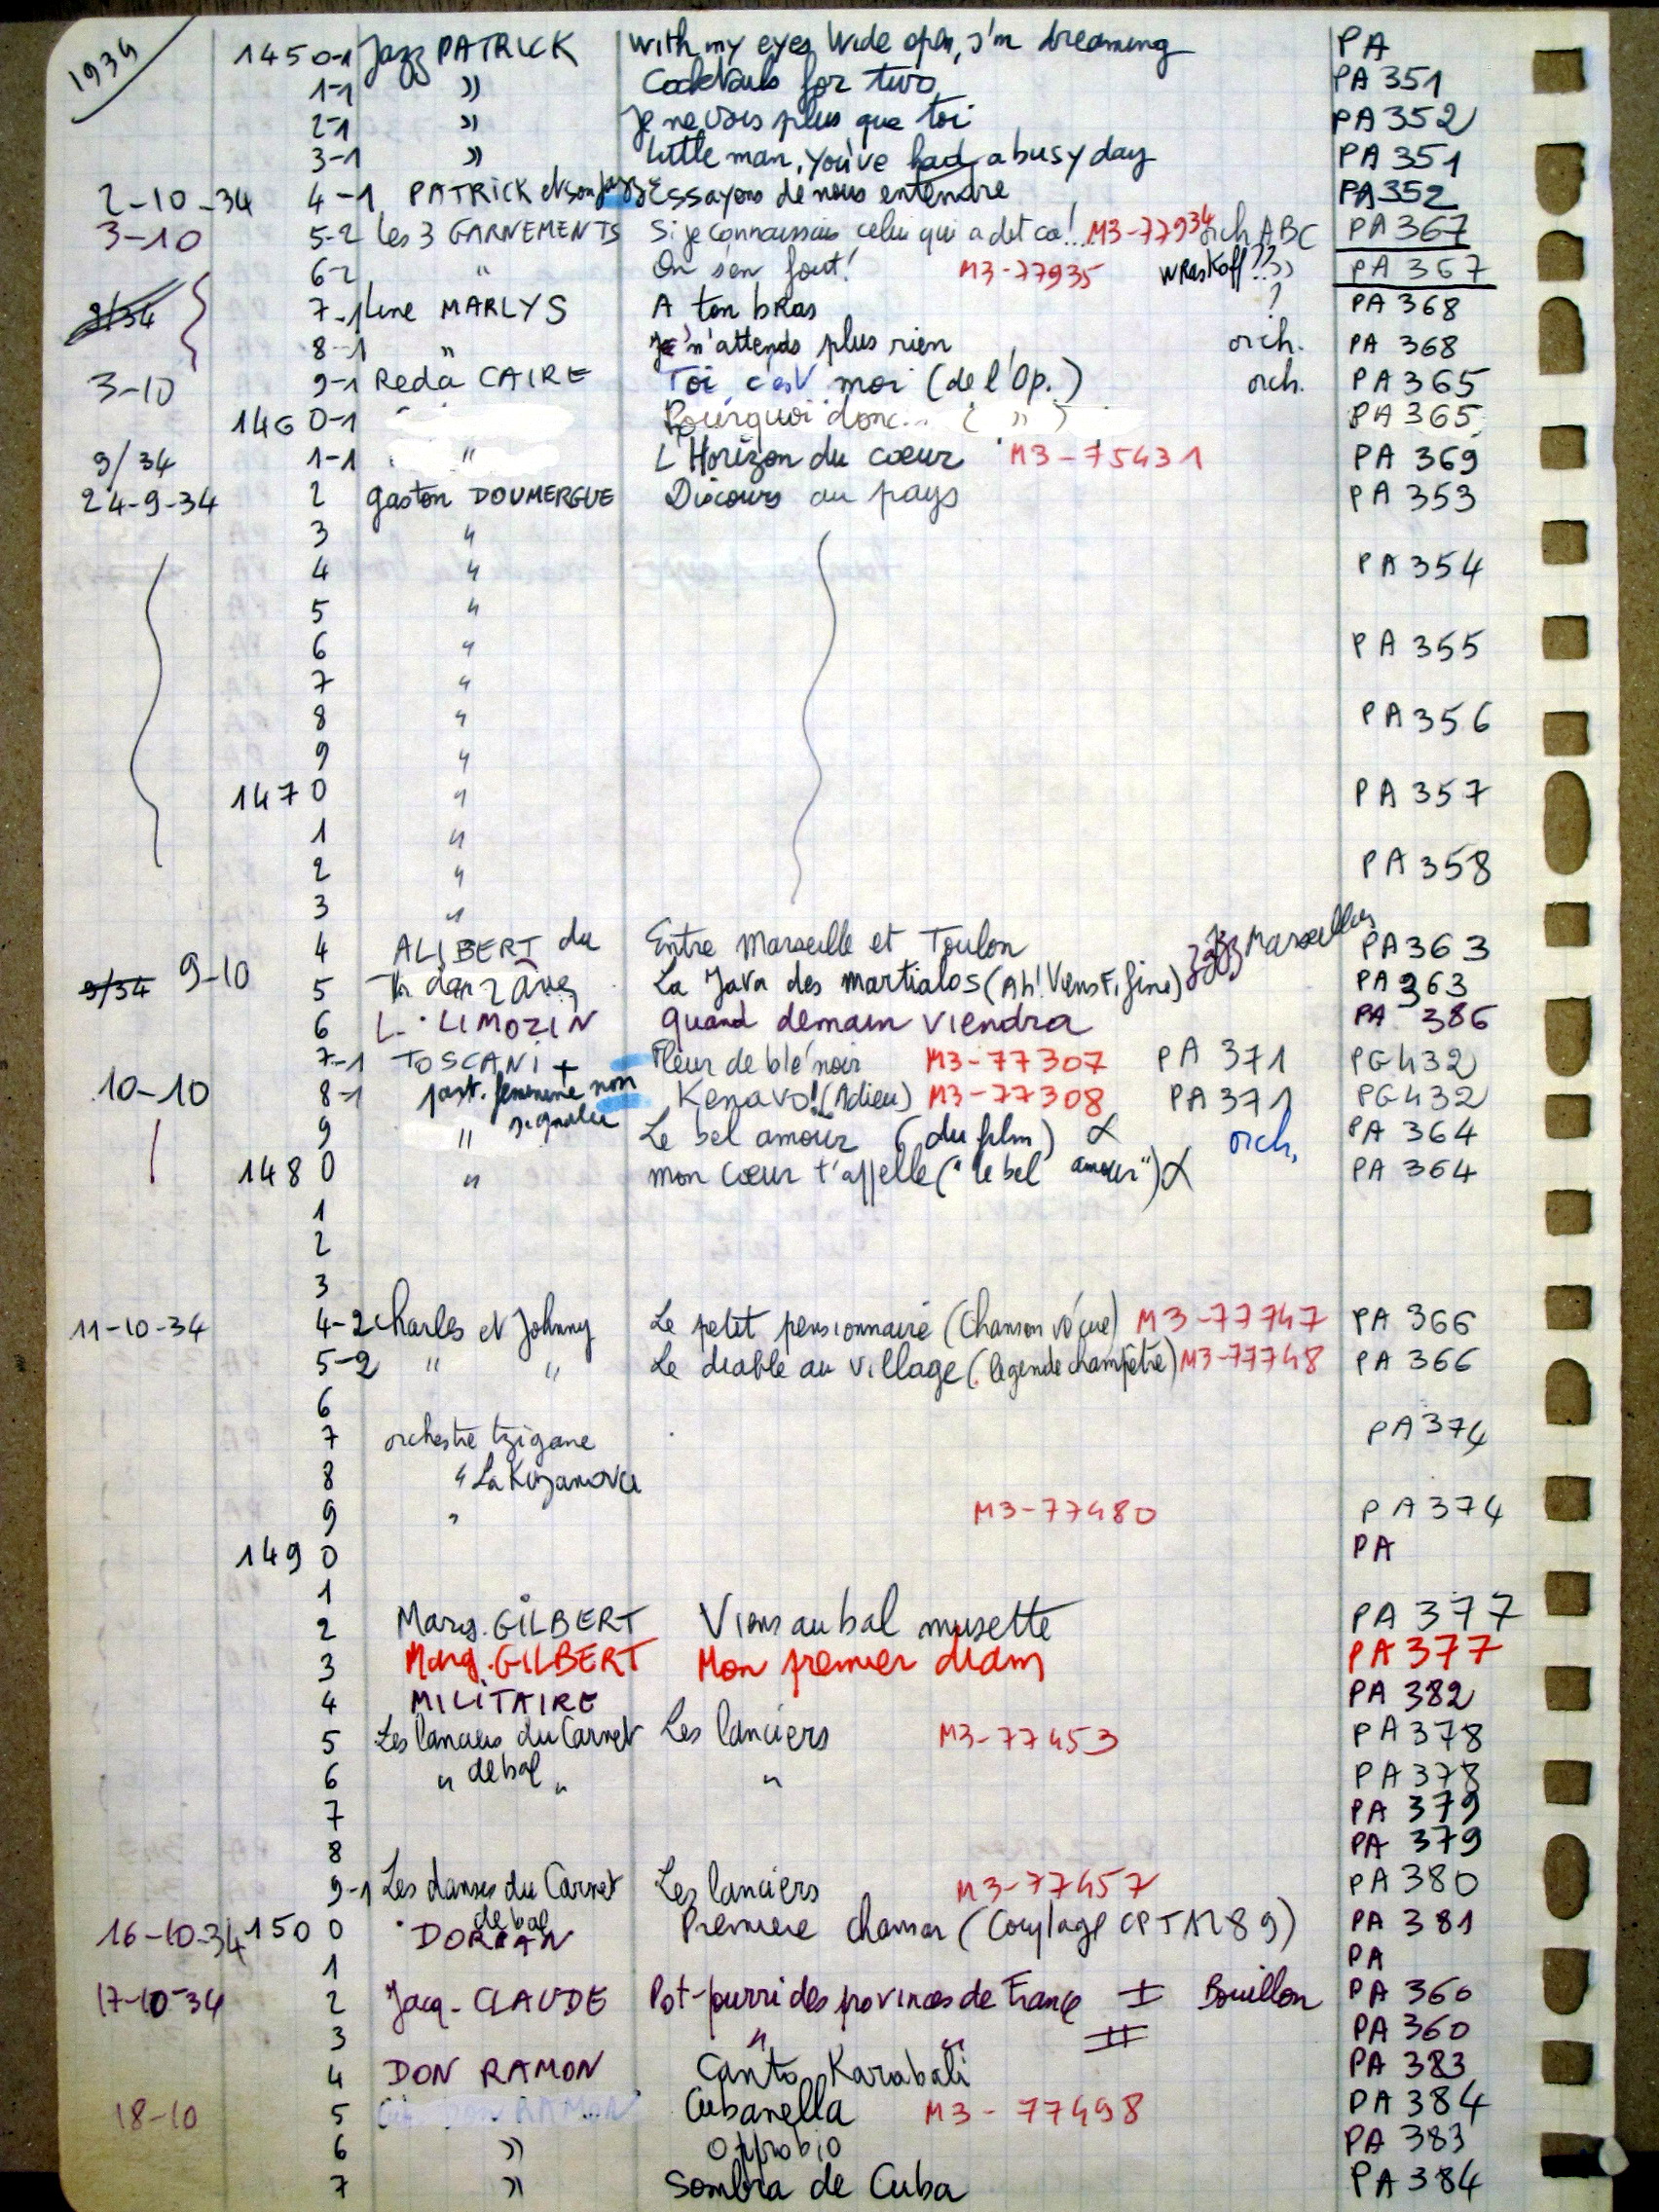 1934
1450-1 Jazz PATRICK With my eyes Wide open, I'm dreaming PA
1-1 " Cocktails for two PA 351
2-1 " Je ne vois plus que toi PA 352
3-1 " Little man, you've had a busy day PA 351
2-10-34 4-1 PATRICK et son jazz Essayons de nous entendre PA 352
3-10 5-2 Les 3 GARNEMENTS Si je connaissais celui qui a dit ca!.. M3-77934 orch ABC PA 367
6-2 " On s'en fout! M3-77935 Wraskoff?? " PA 367
9/34 7-1 Line MARLYS A ton bras ? PA 368
8-1 " Je n'attends plus rien orch. PA 368
3-10 9-1 Reda CAIRE Toi, c'est moi (de l'Op.) orch. PA 365
1460-1 Pourquoi donc... ( " ) PA 365
9/34 1-1 " L'Horizon du coeur M3-75431 PA 369
24-9-34 2 Gaston DOUMERGUE Discours au pays PA 353
3 "
4 " PA 354
5 "
6 " PA 355
7 "
8 " PA 356
9 "
1470 " PA 357
1 "
2 " PA 358
3 "
4 ALIBERT du Entre Marseille et Toulon Jazz Marseillais PA 363
9/34 9-10 5 La Java des martialos (Ah! Viens Fifine) PA 363
6 L. LIMOZIN Quand demain viendra PA 386
7-1 TOSCANI + Fleur de blé noir M3-77307 PA 371 PG 432
10-10 8-1 part. féminine non signalée Kenavo! (Adieu) M3-77308 PA 371 PG 432
9 " Le bel amour (du film) α orch. PA 364
1480 " Mon coeur t'appelle ("le bel amour") α PA 364
1
2
3
11-10-34 4-2 Charles et Johnny Le petit pensionnaire (Chanson vécue) M3-77747 PA 366
5-2 " " Le diable au village (légende champêtre) M3-77748 PA 366
6
7 orchestre tzigane PA 374
8 " La Kazanova
9 " M3-77480 PA 374
1490 PA
1
2 Marg. GILBERT Viens au bal musette PA 377
3 Marg. GILBERT Mon premier diam PA 377
4 MILITAIRE PA 382
5 Les lanciers du Carnet Les lanciers M3-77453 PA 378
6 " de bal " " PA 378
7 PA 379
8 PA 379
9-1 Les danses du Carnet de bal Les lanciers M3-77457 PA 380
16-10-34 1500 DORIAN Première chanson (Couplage CPT 1289) PA 381
1 PA
17-10-34 2 Jacq. CLAUDE Pot-pourri des provinces de France I Bouillon PA 360
3 " " II PA 360
4 DON RAMON Canto Karabali PA 383
18-10 5 DON RAMON Cubanella M3-77498 PA 384
6 " Opprobio PA 383
7 " Sombra de Cuba PA 384